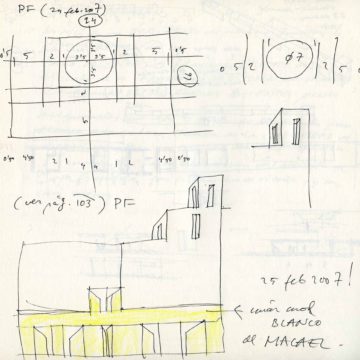 PF (24 feb. 2007)
24
0'5 5 2 1 3'5 3'5 1 2 5 0'5
0 5 2 φ7 2 5 0
0'50 4'50 2 1 4 4 1 2 4'50 0'50
(ver pág. 103) PF
25 feb 2007!
BLANCO
de MACAEL.